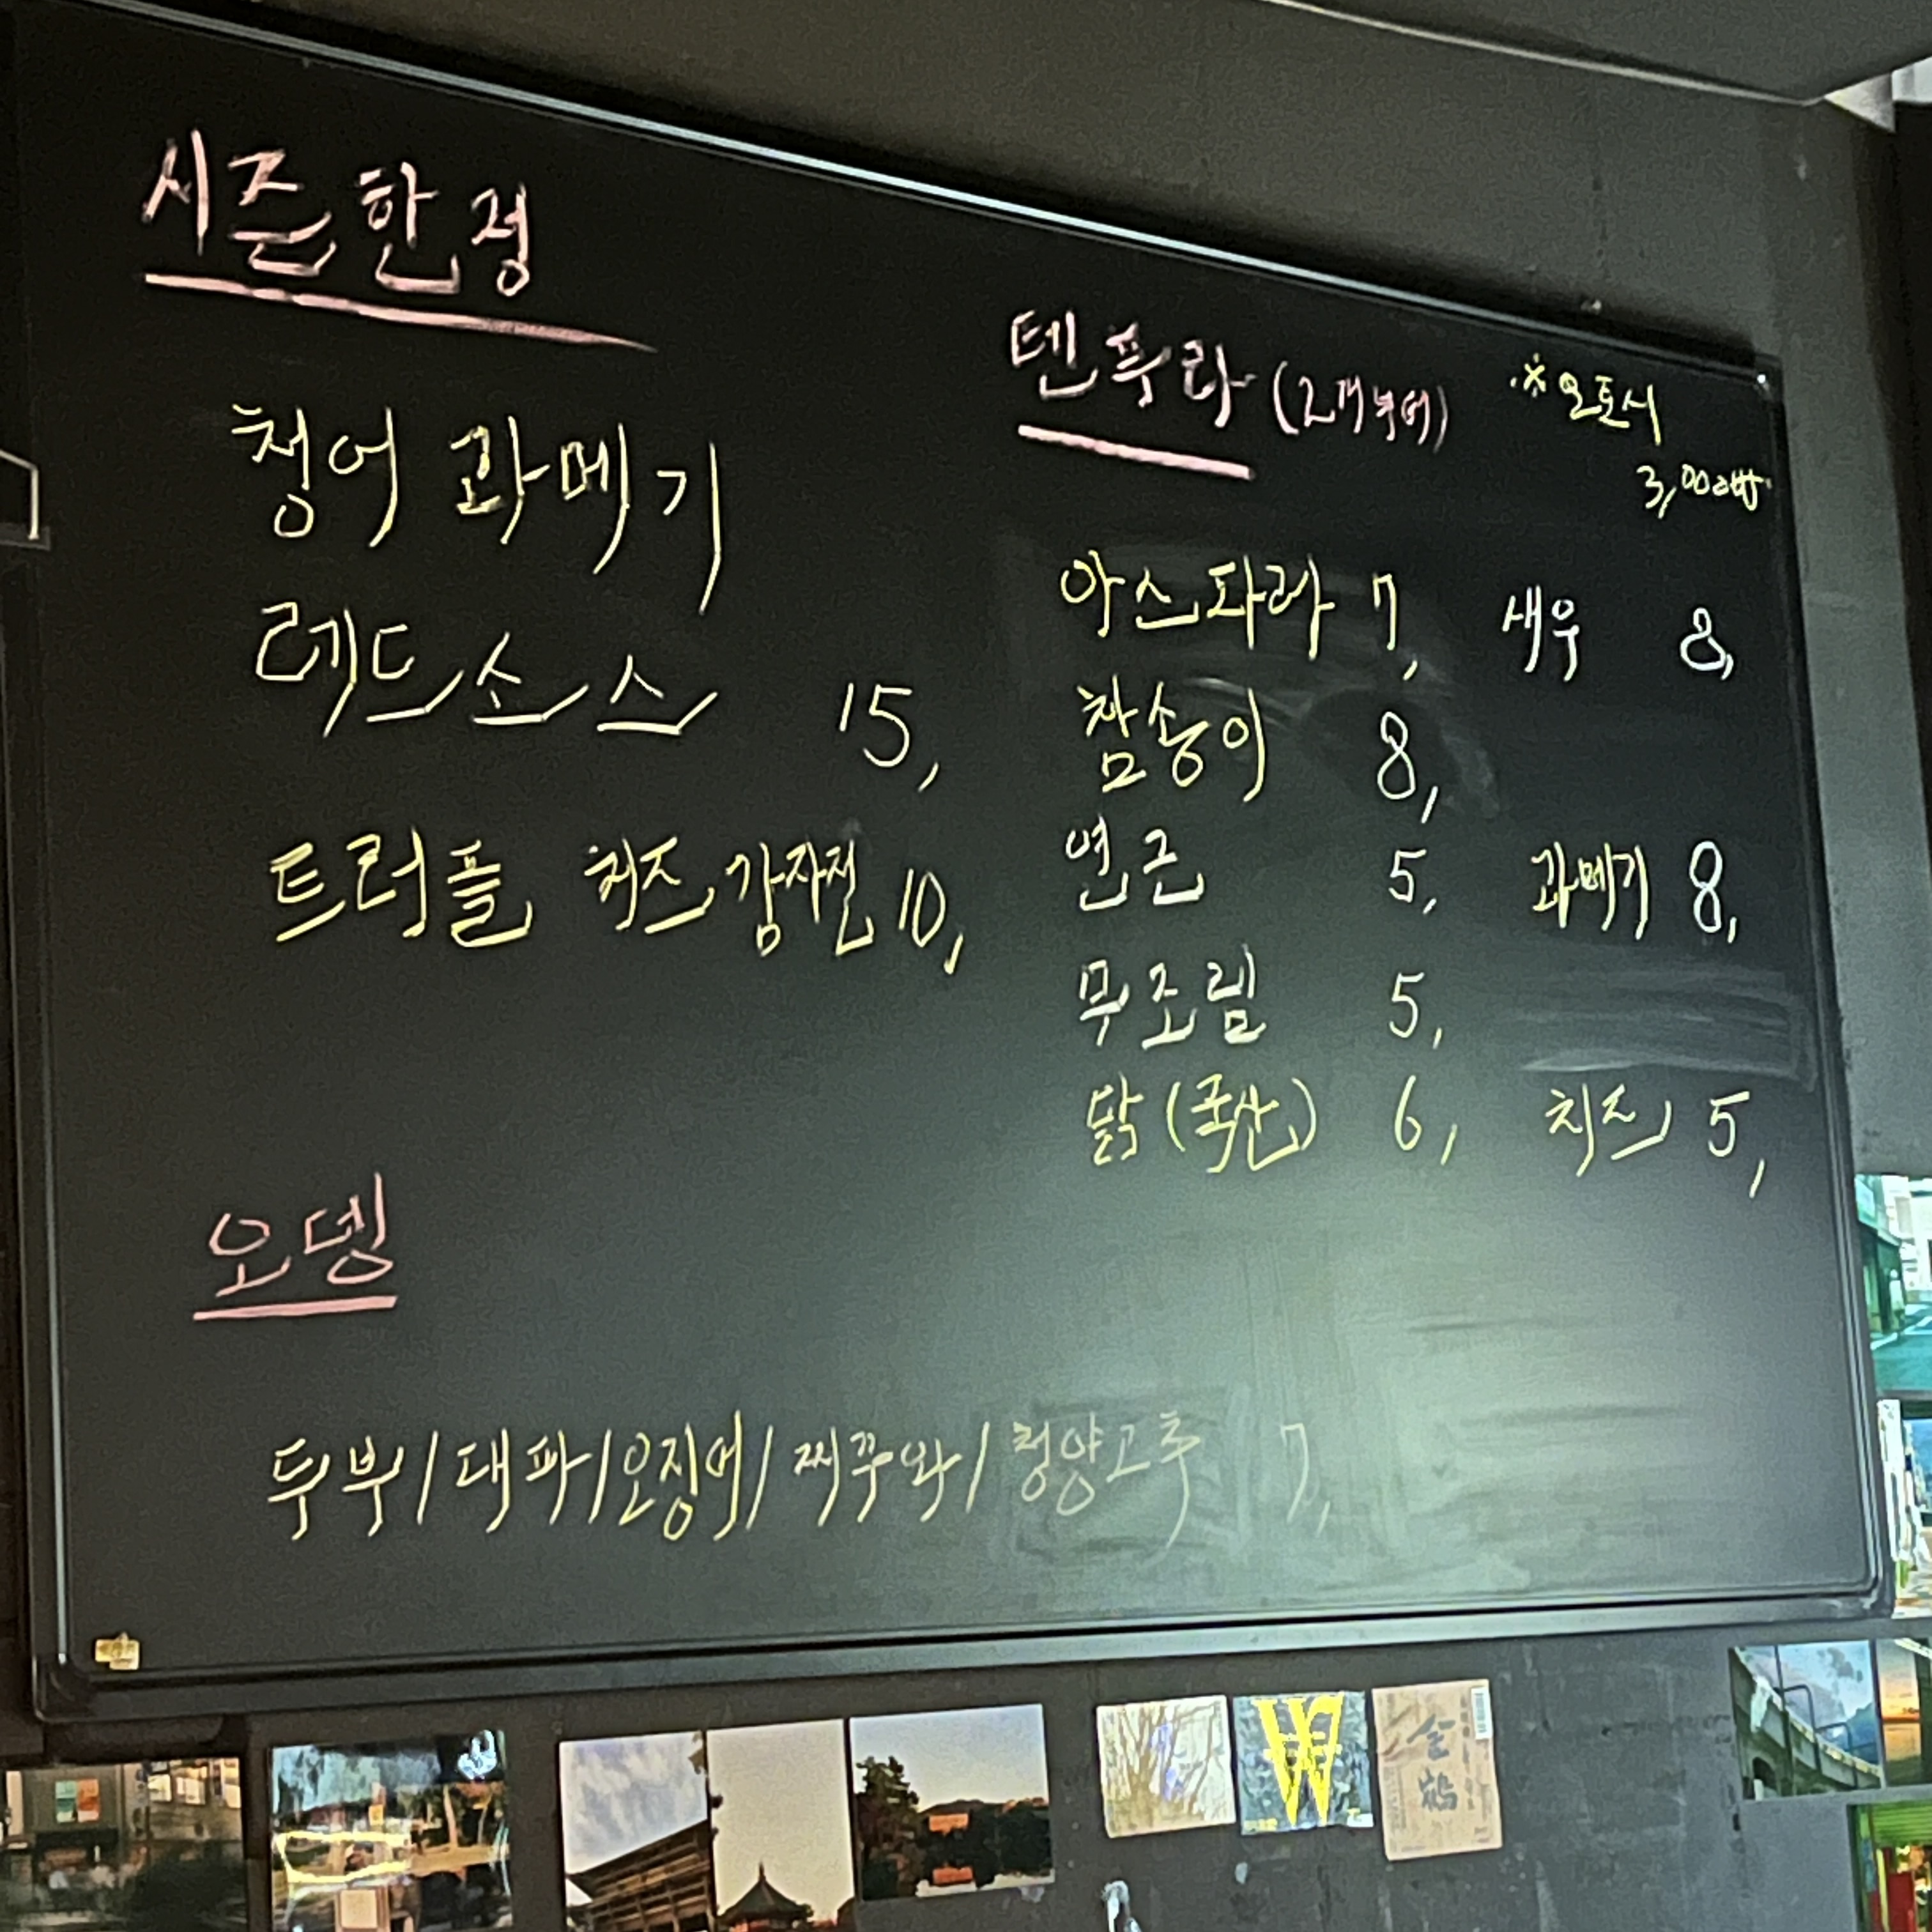 시즌한정
청어 과메기
레드소스 15,
트러플 치즈감자전 10,
텐푸라 (2개부터)
※오토시
3,000받
아스파라 7, 새우 8,
참송이 8,
연근 5, 과메기 8,
무조림 5,
닭(국산) 6, 치즈 5,
오뎅
두부/대파/오징어/찌꾸와/청양고추 7,
W
金鶴